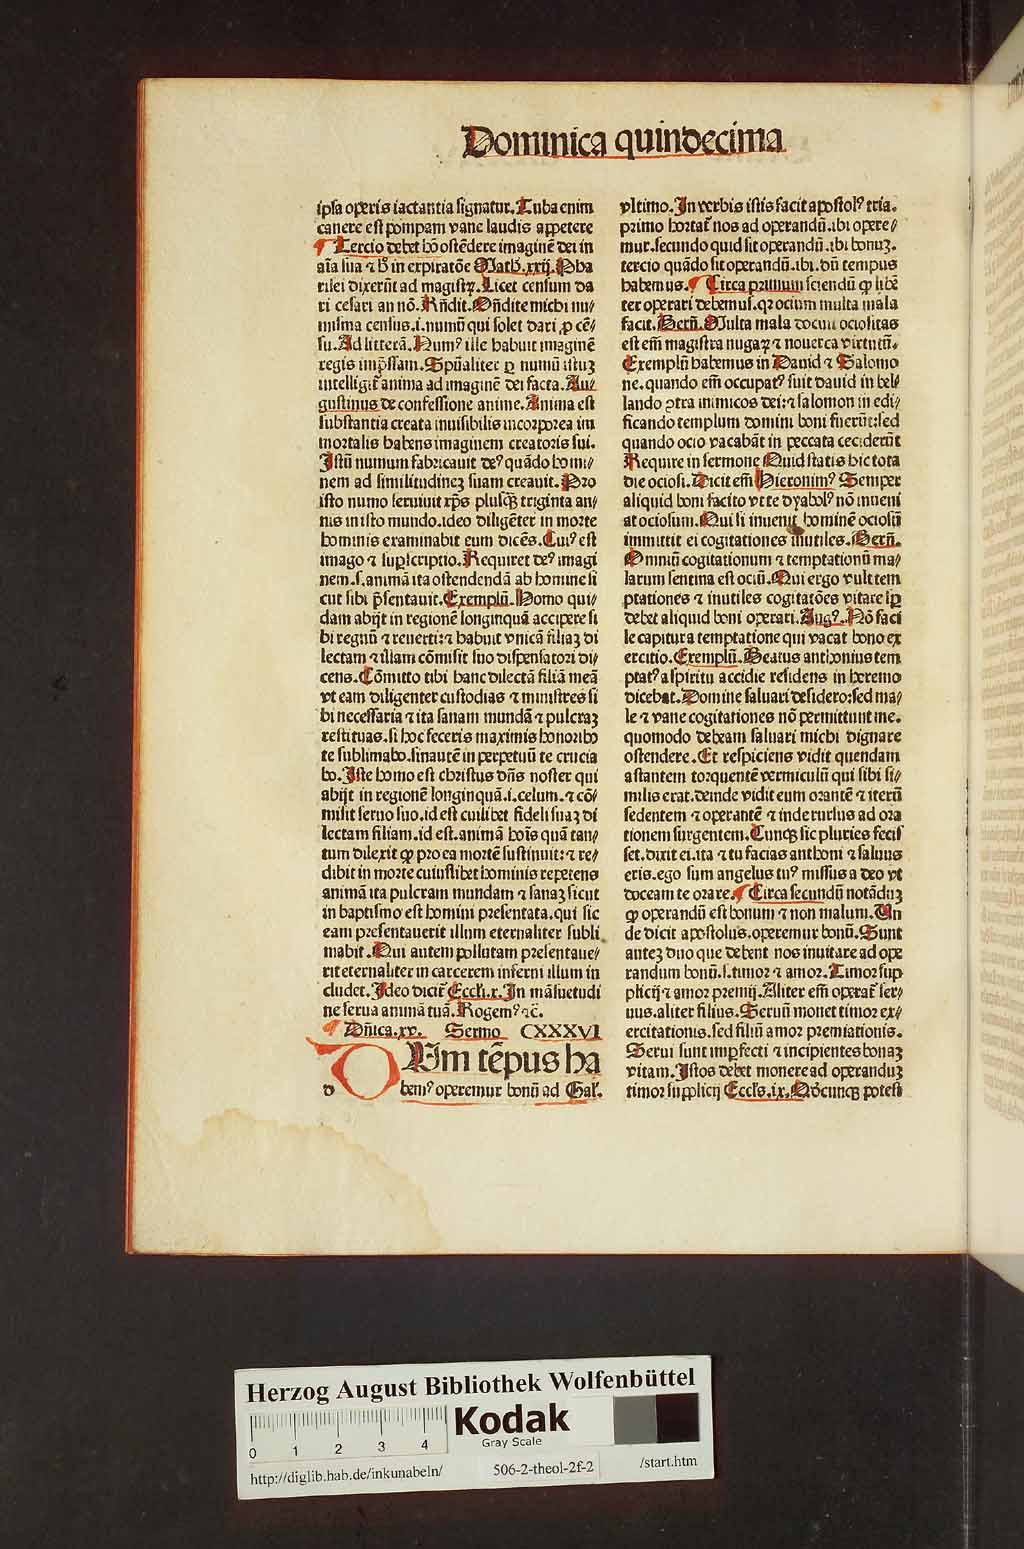 Dominica quindecima
ipsa operis iactantia signatur. Tuba enim
canere est pompam vane laudis appetere
¶ Tercio debet hō ostēdere imaginē dei in
aīa sua ⁊ ħ in expiratōe Math. xxij. Pha
risei dixerūt ad magistꝝ. Licet censum da
ri cesari an nō. Rn̄dit. On̄dite michi nu⸗
misma census .i. numū qui solet dari ꝓ cē⸗
su. Ad litterā. Numꝰ ille habuit imaginē
regis imp̄ssam. Spūaliter ꝑ numū istuꝫ
intelligit̄ anima ad imaginē dei facta. Au⸗
gustinus de confessione anime. Anima est
substantia creata inuisibilis incorporea im
mortalis habens imaginem creatoris sui.
Istū numum fabricauit deꝰ quādo homi⸗
nem ad similitudineꝫ suam creauit. Pro
isto numo seruiuit xp̄s plusqꝫ triginta an⸗
nis in isto mundo. ideo diligēter in morte
hominis examinabit eum dicēs. Cuiꝰ est
imago ⁊ suꝑscriptio. Requiret deꝰ imagi
nem .s. animā ita ostendendā ab homine si
cut sibi p̄sentauit. Exemplū. Homo qui⸗
dam abijt in regionē longinquā accipere si
bi regnū ⁊ reuerti: ⁊ habuit vnicā filiaꝫ di
lectam ⁊ illam cōmisit suo dispensatori di⸗
cens. Cōmitto tibi hanc dilectā filiā meā
vt eam diligenter custodias ⁊ ministres si
bi necessaria ⁊ ita sanam mundā ⁊ pulcraꝫ
restituas. si hoc feceris maximis honoribꝰ
te sublimabo. sinautē in perpetuū te crucia
bo. Iste homo est christus dn̄s noster qui
abijt in regionē longinquā .i. celum. ⁊ cō⸗
misit seruo suo. id est cuilibet fideli suaꝫ di
lectam filiam. id est. animā hoīs quā tan⸗
tum dilexit ꝙ pro ea mortē sustinuit: ⁊ re⸗
dibit in morte cuiuslibet hominis repetens
animā ita pulcram mundam ⁊ sanaꝫ sicut
in baptismo est homini presentata. qui sic
eam presentauerit illum eternaliter subli
mabit. Qui autem pollutam presentaue⸗
rit eternaliter in carcerem inferni illum in
cludet. Ideo dicit̄ Eccli. x. In māsuetudi
ne serua animā tuā. Rogemꝰ ⁊c̄.
¶ Dn̄ica. xv. Sermo CXXXVI
DUm tēpus ha
d bemꝰ operemur bonū ad Gal̄.
vltimo. In verbis istis facit apostolꝰ tria.
primo hortat̄ nos ad operandū. ibi opere⸗
mur. secundo quid sit operandū. ibi bonuꝫ.
tercio quādo sit operandū. ibi. dū tempus
habemus. ¶ Circa primum sciendū ꝙ libē
ter operari debemus. qꝛ ocium multa mala
facit. Bern̄. Multa mala docuit ociositas
est em̄ magistra nugaꝝ ⁊ nouerca virtutū.
Exemplū habemus in Dauid ⁊ Salomo
ne. quando em̄ occupatꝰ fuit dauid in bel⸗
lando ꝯtra inimicos dei: ⁊ salomon in edi⸗
ficando templum domini boni fuerūt: sed
quando ocio vacabāt in peccata ceciderūt
Require in sermone Quid statis hic tota
die ociosi. Dicit em̄ Hieronimꝰ Semper
aliquid boni facito vt te dyabolꝰ nō inueni
at ociosum. Qui si inuenit hominē ociosū
immittit ei cogitationes inutiles. Bern̄.
Omniū cogitationum ⁊ temptationū ma⸗
larum sentina est ociū. Qui ergo vult tem
ptationes ⁊ inutiles cogitatōes vitare sꝑ
debet aliquid boni operari. Augꝰ. Nō faci
le capitur a temptatione qui vacat bono ex
ercitio. Exemplū. Beatus anthonius tem
ptatꝰ a spiritu accidie residens in heremo
dicebat. Domine saluari desidero: sed ma⸗
le ⁊ vane cogitationes nō permittunt me.
quomodo debeam saluari michi dignare
ostendere. Et respiciens vidit quendam
astantem torquentē vermiculū qui sibi si⸗
milis erat. deinde vidit eum orantē ⁊ iterū
sedentem ⁊ operantē ⁊ inde rursus ad ora
tionem surgentem. Cunqꝫ sic pluries fecis
set. dixit ei. ita ⁊ tu facias anthoni ⁊ saluus
eris. ego sum angelus tuꝰ missus a deo vt
doceam te orare. ¶ Circa secundū notāduꝫ
ꝙ operandū est bonum ⁊ non malum. Un
de dicit apostolus. operemur bonū. Sunt
anteꝫ duo que debent nos inuitare ad ope
randum bonū. s. timor ⁊ amor. Timor sup
plicij ⁊ amor premij. Aliter em̄ operat̄ ser⸗
uus. aliter filius. Seruū monet timor ex⸗
ercitationis. sed filiū amor premiationis.
Serui sunt imꝑfecti ⁊ incipientes bonaꝫ
vitam. Istos debet monere ad operanduꝫ
timor supplicij Eccl̄s. ix. Qd̄cunqꝫ potest
Herzog August Bibliothek Wolfenbüttel
0 1 2 3 4
Kodak
Gray Scale
http://diglib.hab.de/inkunabeln/ 506-2-theol-2f-2 /start.htm